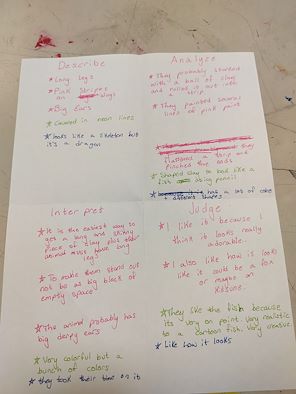 Describe
* Long legs
* Pink stripes
on legs
* Big Ears
* Covered in neon lines
* looks like a skeleton but
it's a dragon
Analyze
* They probably started
with a ball of clay
and rolled it out into
strip
* They painted
lines of pink paint
they
flattened a strip and
pinched the ends
* Shaped clay to look like a
fish using pencil
* has a lot of color
+ different shapes
Interpret
* It is the easiest way to
get a long and skinny
piece of clay plus their
animal must have long
legs
* To make them stand out
not be as big black of
empty space
* The animal probably has
big derpy ears
* Very colorful but a
bunch of colors
* they took their time on it
Judge
* I like it because I
think it looks really
adorable.
* I also like how it looks
like it could be a fox
or maybe a
Kitsune.
* They like the fish because
its very on point. Very realistic
to a cartoon fish. Very creative.
* Like how it looks